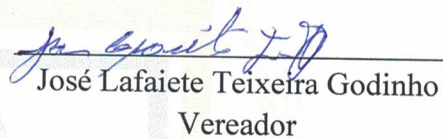 José Lafaiete Teixeira Godinho
Vereador